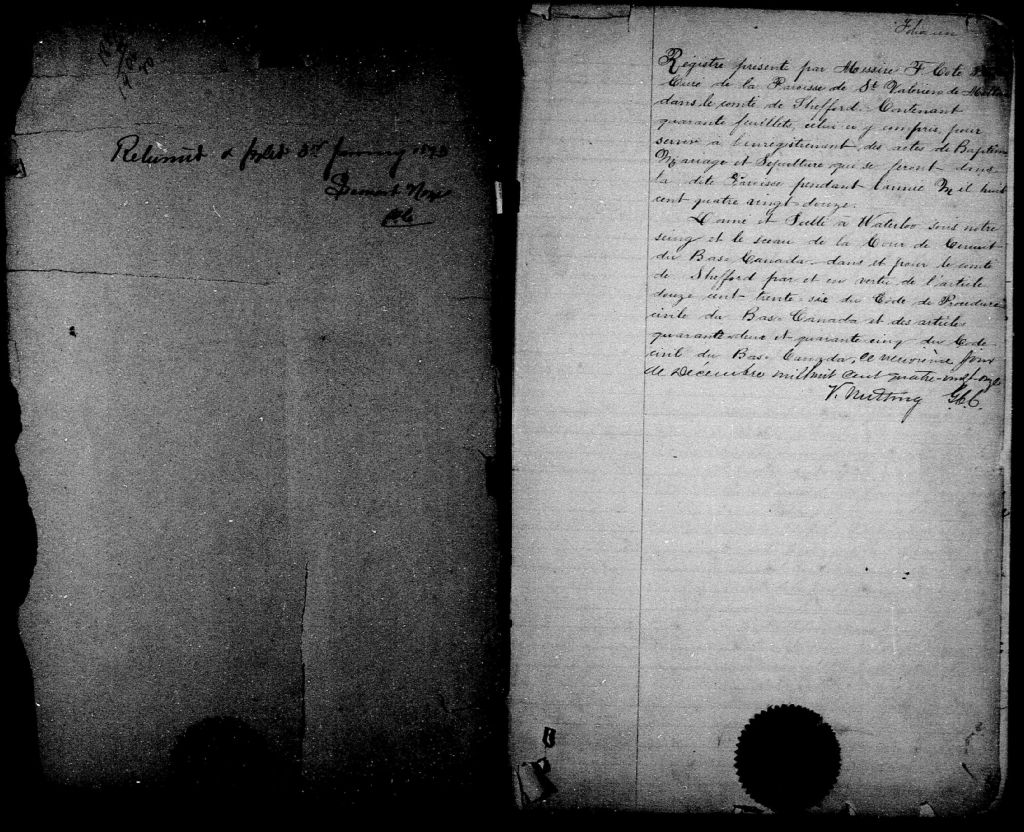 Returned & filed 3rd January 1893
Folio un
Registre presenté par Messire F. Coté Ptre
Curé de la Paroisse de St Valerien de Milton
dans le comté de Shefford. Contenant
quarante feuillets, celui-ci y compris, pour
servir à l'enregistrement des actes de Baptême
Mariage et Sépulture qui se feront dans
la dite Paroisse pendant l'année Mil huit
cent quatre vingt-douze.
Donné et Scellé à Waterloo sous notre
seing et le sceau de la Cour de Circuit
du Bas-Canada dans et pour le comté
de Shefford par et en vertu de l'article
douze cent-trente-six du Code de Procédure
civile du Bas-Canada et des articles
quarante-deux et quarante-cinq du Code
civil du Bas-Canada, ce neuvième jour
de Décembre mil huit cent quatre-vingt-onze
V. Nutting G.C.C.